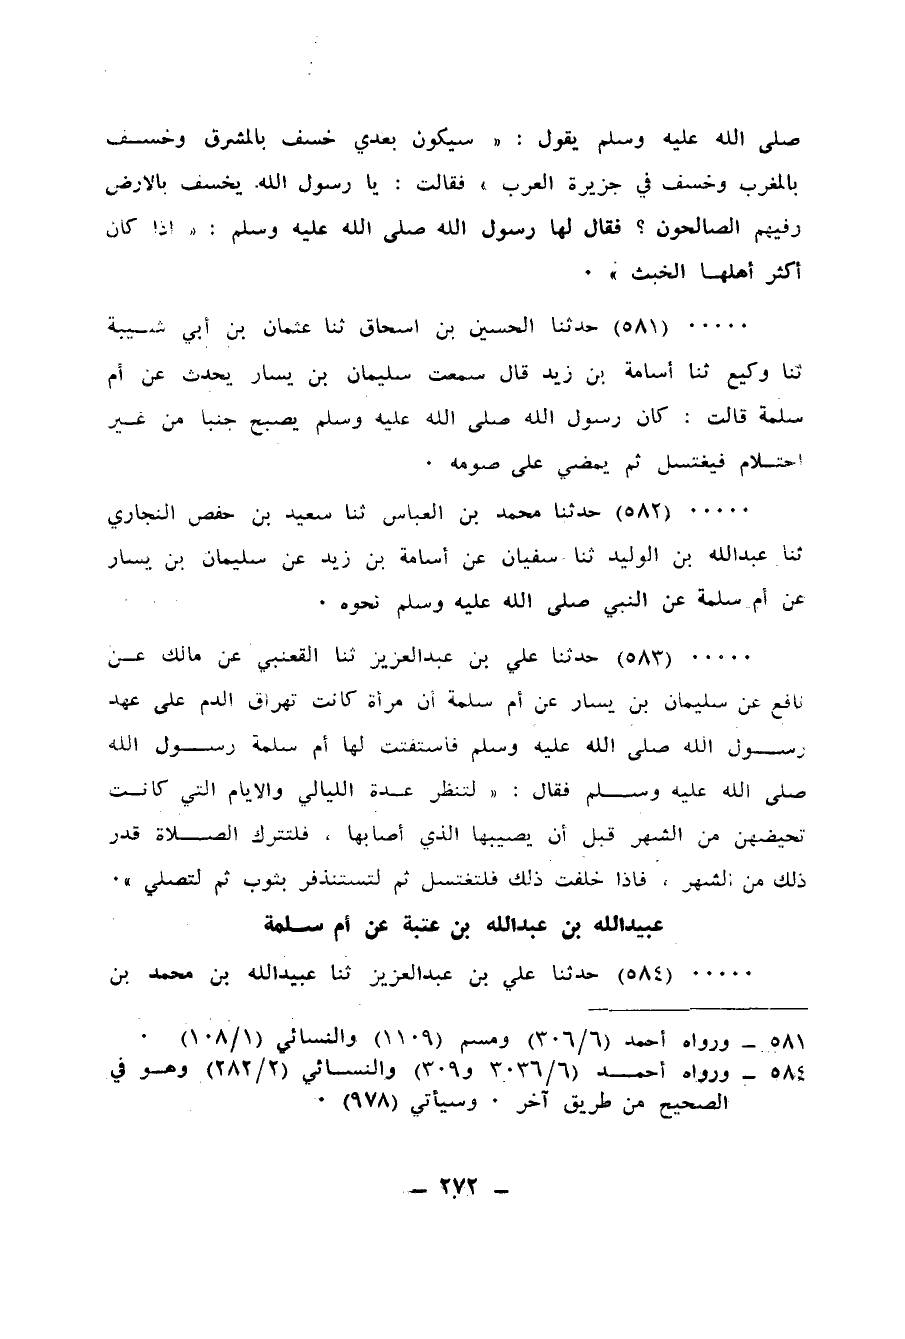 صلى الله عليه وسلم يقول : « سيكون بعدي خسف بالمشرق وخسف
بالمغرب وخسف في جزيرة العرب ، فقالت : يا رسول الله. يخسف بالارض
رفيهم الصالحون ؟ فقال لها رسول الله صلى الله عليه وسلم : « اذا كان
أكثر أهلها الخبث » ٠
٠٠٠٠٠ (٥٨١) حدثنا الحسين بن اسحاق ثنا عثمان بن أبي شيبة
ثنا وكيع ثنا أسامة بن زيد قال سمعت سليمان بن يسار يحدث عن أم
سلمة قالت : كان رسول الله صلى الله عليه وسلم يصبح جنبا من غير
احتلام فيغتسل ثم يمضي على صومه ٠
٠٠٠٠٠ (٥٨٢) حدثنا محمد بن العباس ثنا سعيد بن حفص النجاري
ثنا عبدالله بن الوليد ثنا سفيان عن أسامة بن زيد عن سليمان بن يسار
عن أم سلمة عن النبي صلى الله عليه وسلم نحوه ٠
٠٠٠٠٠ (٥٨٣) حدثنا علي بن عبدالعزيز ثنا القعنبي عن مالك عن
نافع عن سليمان بن يسار عن أم سلمة أن مرأة كانت تهراق الدم على عهد
رسول الله صلى الله عليه وسلم فاستفتت لها أم سلمة رسول الله
صلى الله عليه وسلم فقال : « لتنظر عدة الليالي والايام التي كانت
تحيضهن من الشهر قبل أن يصيبها الذي أصابها ، فلتترك الصلاة قدر
ذلك من الشهر ، فاذا خلفت ذلك فلتغتسل ثم لتستنذفر بثوب ثم لتصلي »٠
عبيدالله بن عبدالله بن عتبة عن أم سلمة
٠٠٠٠٠ (٥٨٤) حدثنا علي بن عبدالعزيز ثنا عبيدالله بن محمد بن
٥٨١ ـ ورواه أحمد (٣٠٦/٦) ومسم (١١٠٩) والنسائي (١٠٨/١) ٠
٥٨٤ ـ ورواه أحمد (٣٠٣٦/٦ و٣٠٩) والنسائي (٢٨٢/٢) وهو في
الصحيح من طريق آخر ٠ وسيأتي (٩٧٨) ٠
ـ ٢٧٢ ـ